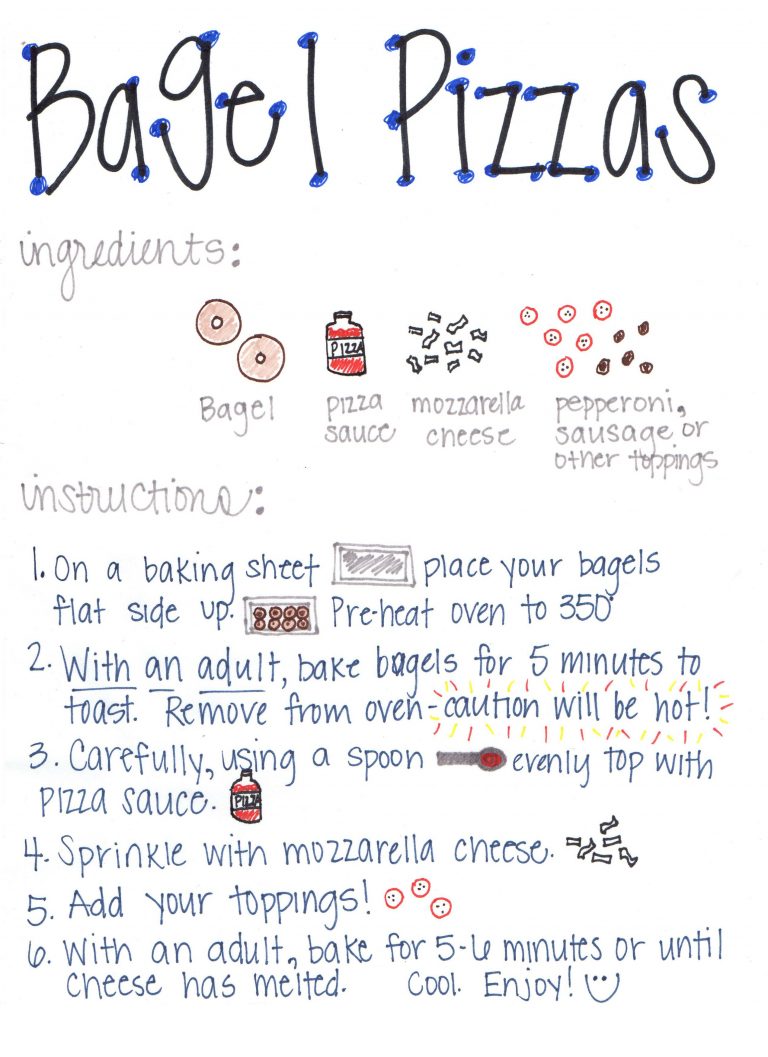 Bagel Pizzas
ingredients:
PIZZA
Bagel
pizza sauce
mozzarella cheese
pepperoni, sausage or other toppings
instructions:
1. On a baking sheet place your bagels
flat side up. Pre-heat oven to 350°
2. With an adult, bake bagels for 5 minutes to
toast. Remove from oven-caution will be hot!
3. Carefully, using a spoon evenly top with
pizza sauce. PIZZA
4. Sprinkle with mozzarella cheese.
5. Add your toppings!
6. With an adult, bake for 5-6 minutes or until
cheese has melted. Cool. Enjoy!